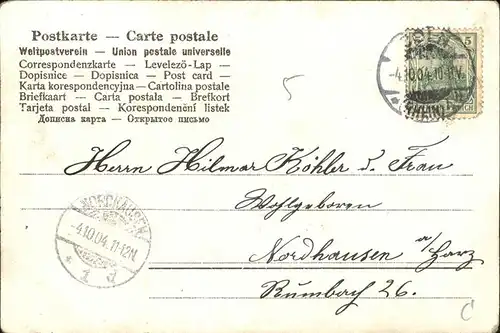 Postkarte — Carte postale
Weltpostverein — Union postale universelle
Correspondenzkarte — Levelező-Lap —
Dopisnice — Dopisnica — Post card —
Karta korespondencyjna — Cartolina postale
Briefkaart — Carta postala — Brefkort
Tarjeta postal — Korespondenční listek
Дописна карта — Открытое письмо
5
5
-4.10.04. 10-11V.
Herrn Hilmar Köhler u. Frau
Wohlgeboren
NORDHAUSEN
-4.10.04. 11-12N.
* 1 d
Nordhausen a/Harz
Rumbach 26.
C